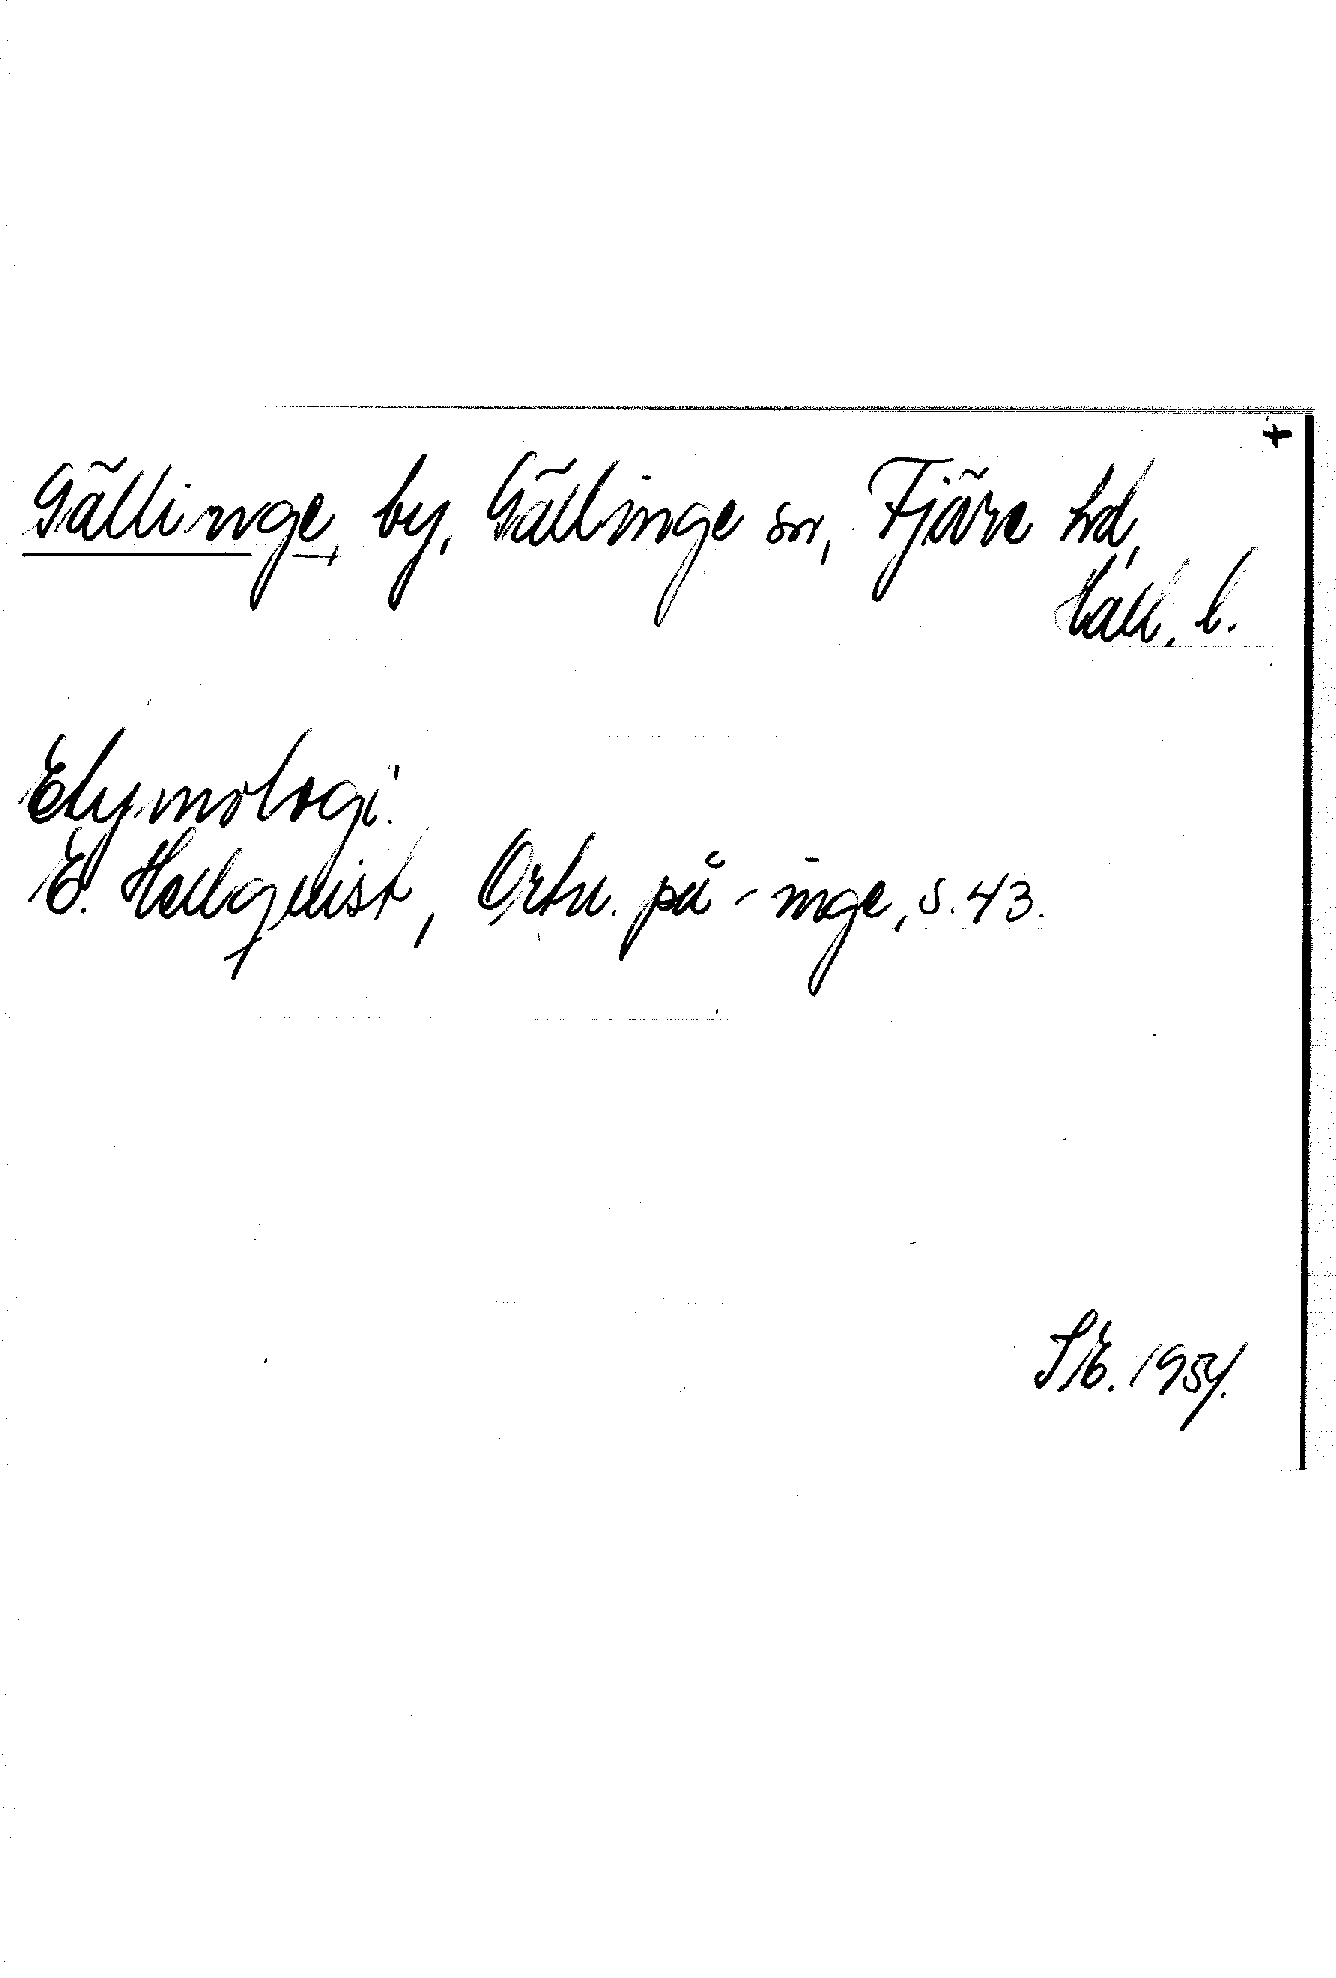 +
Gällinge, by, Gällinge sn, Fjäre hd,
Hall. l.
Etymologi:
E. Hellquist, Ortn. på -inge, s. 43.
S.E. 1954.